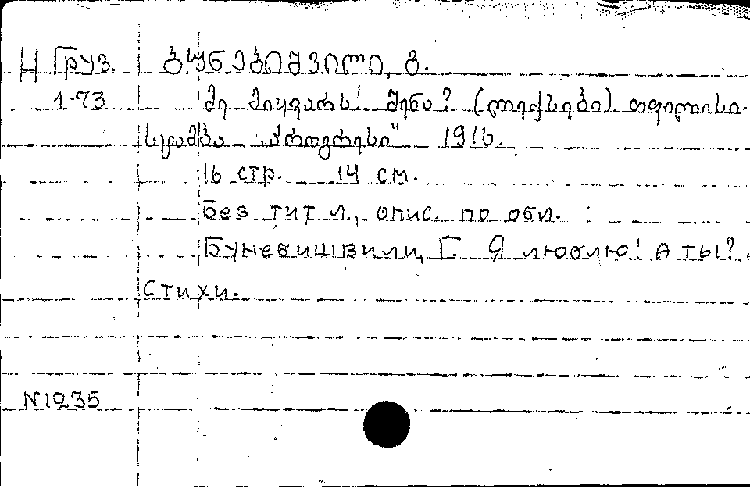 Н Груз. ბუნებიშვილი, გ.
1-73 მე მიყვარს! შენა? (ლექსები) თფილისი.
სტამბა „პროგრესი" 1916.
16 стр. 14 см.
Без тит л., опис. по обл.
Буневишвили, Г. Я люблю! А ты?
Стихи.
N1235